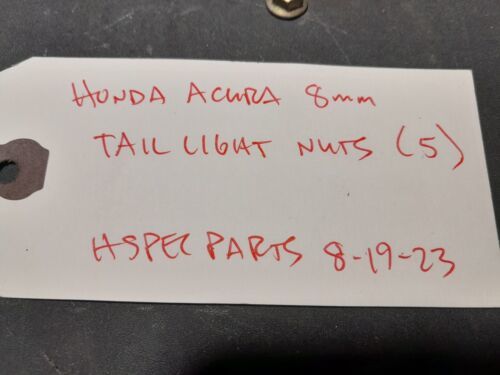 HONDA ACURA 8mm
TAIL LIGHT NUTS (5)
HSPEC PARTS 8-19-23